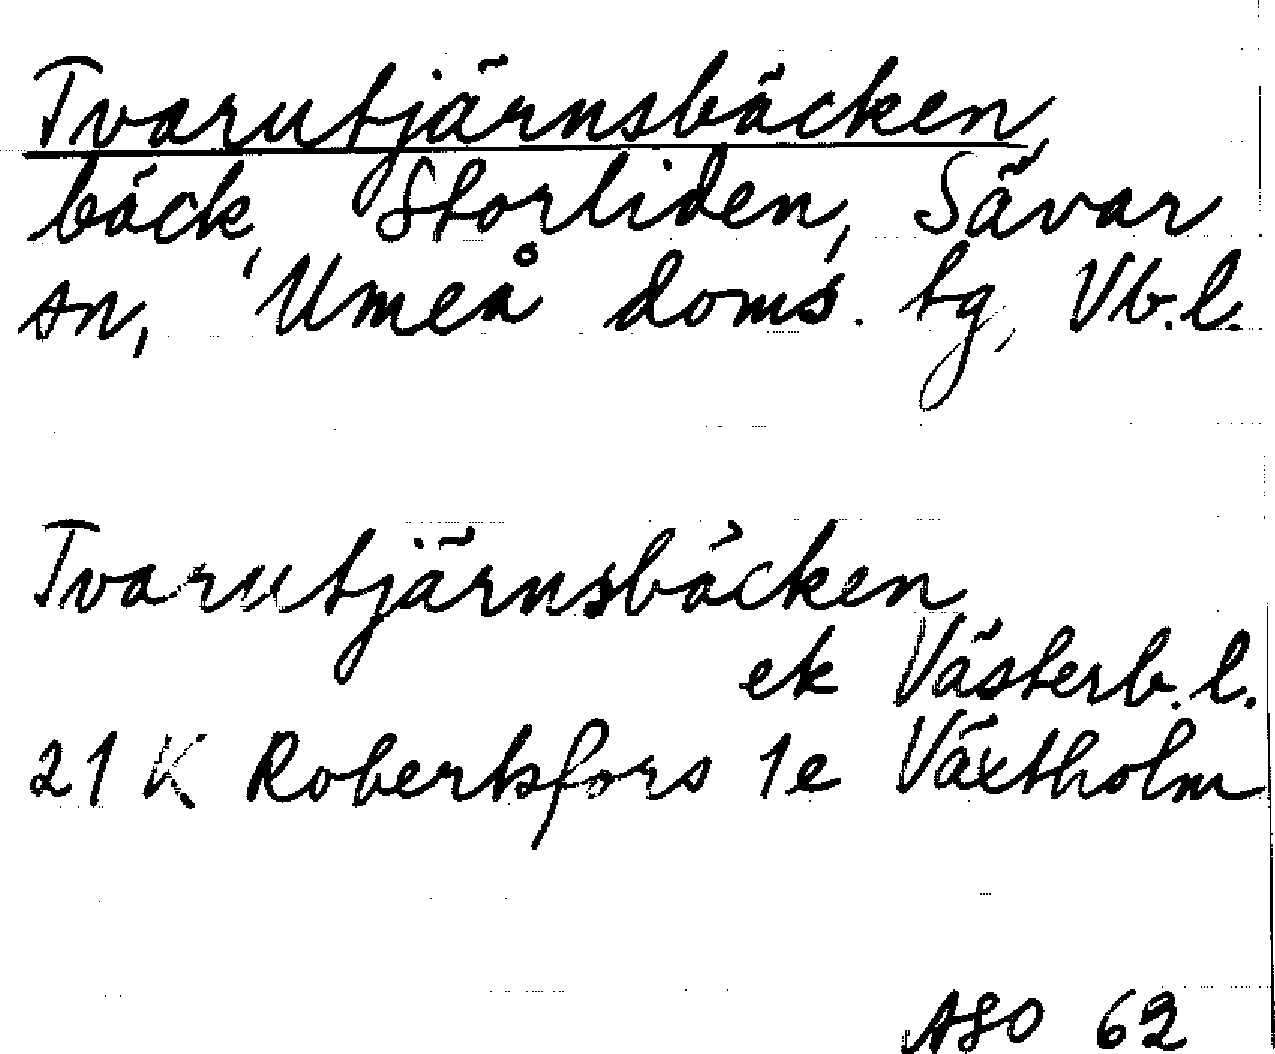 Tvarutjärnsbäcken,
bäck, Storliden, Sävar
sn, Umeå doms. tg, Vb.l.
Tvarutjärnsbäcken
ek Västerb.l.
21 K Robertsfors 1e Växtholm
ASO 62